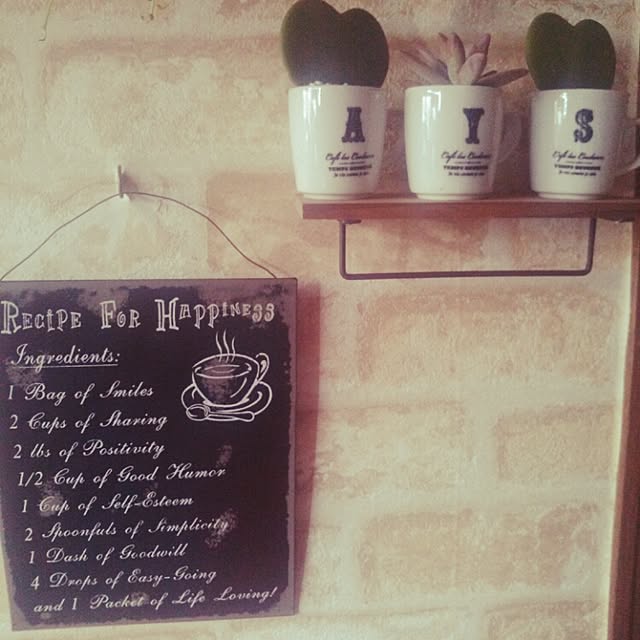 A
Café des Couleurs
Y
Café des Couleurs
S
Café des Couleurs
Recipe For Happiness
Ingredients:
1 Bag of Smiles
2 Cups of Sharing
2 lbs of Positivity
1/2 Cup of Good Humor
1 Cup of Self-Esteem
2 Spoonfuls of Simplicity
1 Dash of Goodwill
4 Drops of Easy-Going
and 1 Packet of Life Loving!